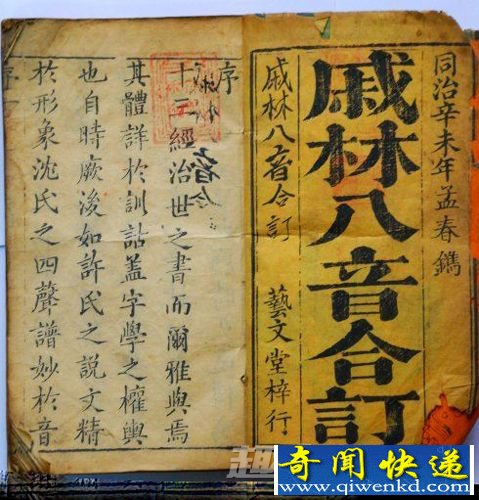 同治辛未年孟春鐫
戚林八音合訂
戚林八音合訂
藝文堂梓行
序
十三經治世之書而爾雅與焉
其體詳於訓詁蓋字學之權輿
也自時厥後如許氏之說文精
於形象沈氏之四聲譜妙於音
序
奇闻快递
www.qiwenkd.com